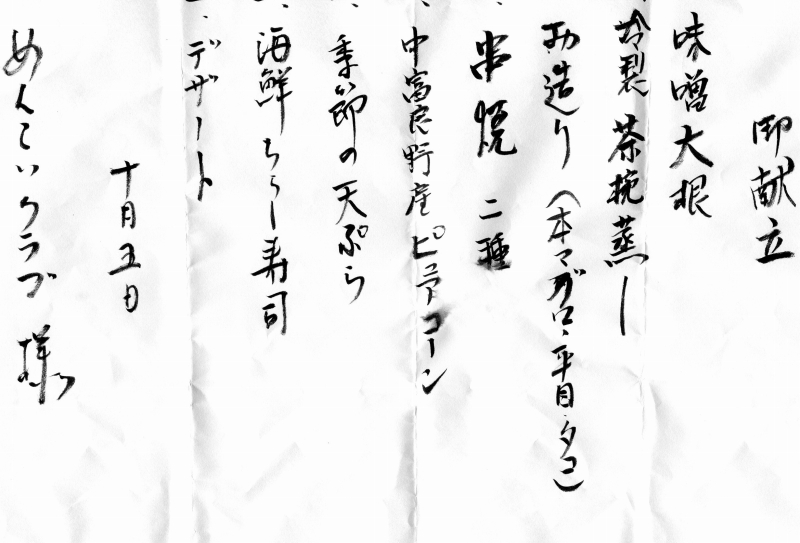 御献立
味噌大根
冷製 茶碗蒸し
お造り(本マグロ、平目、タコ)
串焼 二種
中富良野産ピュアコーン
季節の天ぷら
海鮮ちらし寿司
デザート
十月五日
めんこいクラブ 様